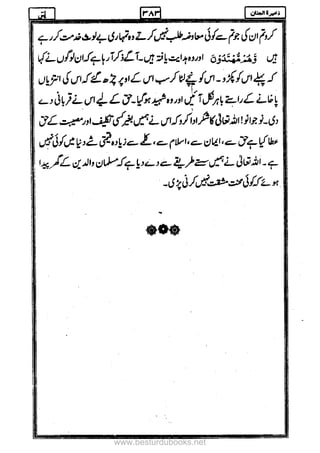 ذخیرة الجنان ۳۸۳ یٰسٓ
کرو تم ان کی جو تم سے کوئی معاوضہ طلب نہیں کرتے وہ تمہاری بے لوث خدمت کر رہے
ہیں وَهُمْ مُّهْتَدُوْنَ اور وہ ہدایت یافتہ ہیں۔ آگے ذکر آ رہا ہے کہ ان لوگوں نے کہا
کہ پہلے اس کو پکڑو۔ اس کو نیچے لٹا کر سب اس کے اوپر چڑھ گئے کہ اس کی انتڑیاں
پاخانے کے راستے باہر نکل آئیں اور وہ شہید ہو گیا۔ حق کے لیے اس نے قربانی دے
دی۔ نوجوانو! اللہ تعالیٰ کا شکر ادا کرو کہ اس نے ہمیں بغیر کسی تکلیف اور مصیبت کے حق
عطا کیا ہے حق سے، ایمان سے، اسلام سے، کلمے سے زیادہ قیمتی شے دنیا میں کوئی نہیں
ہے۔ اللہ تعالیٰ نے ہمیں سستے طریقے سے دے دیا ہے کہ مسلمان والدین کے گھر پیدا
ہوئے کہ کوئی محنت مشقت نہیں کرنی پڑی۔
www.besturdubooks.net